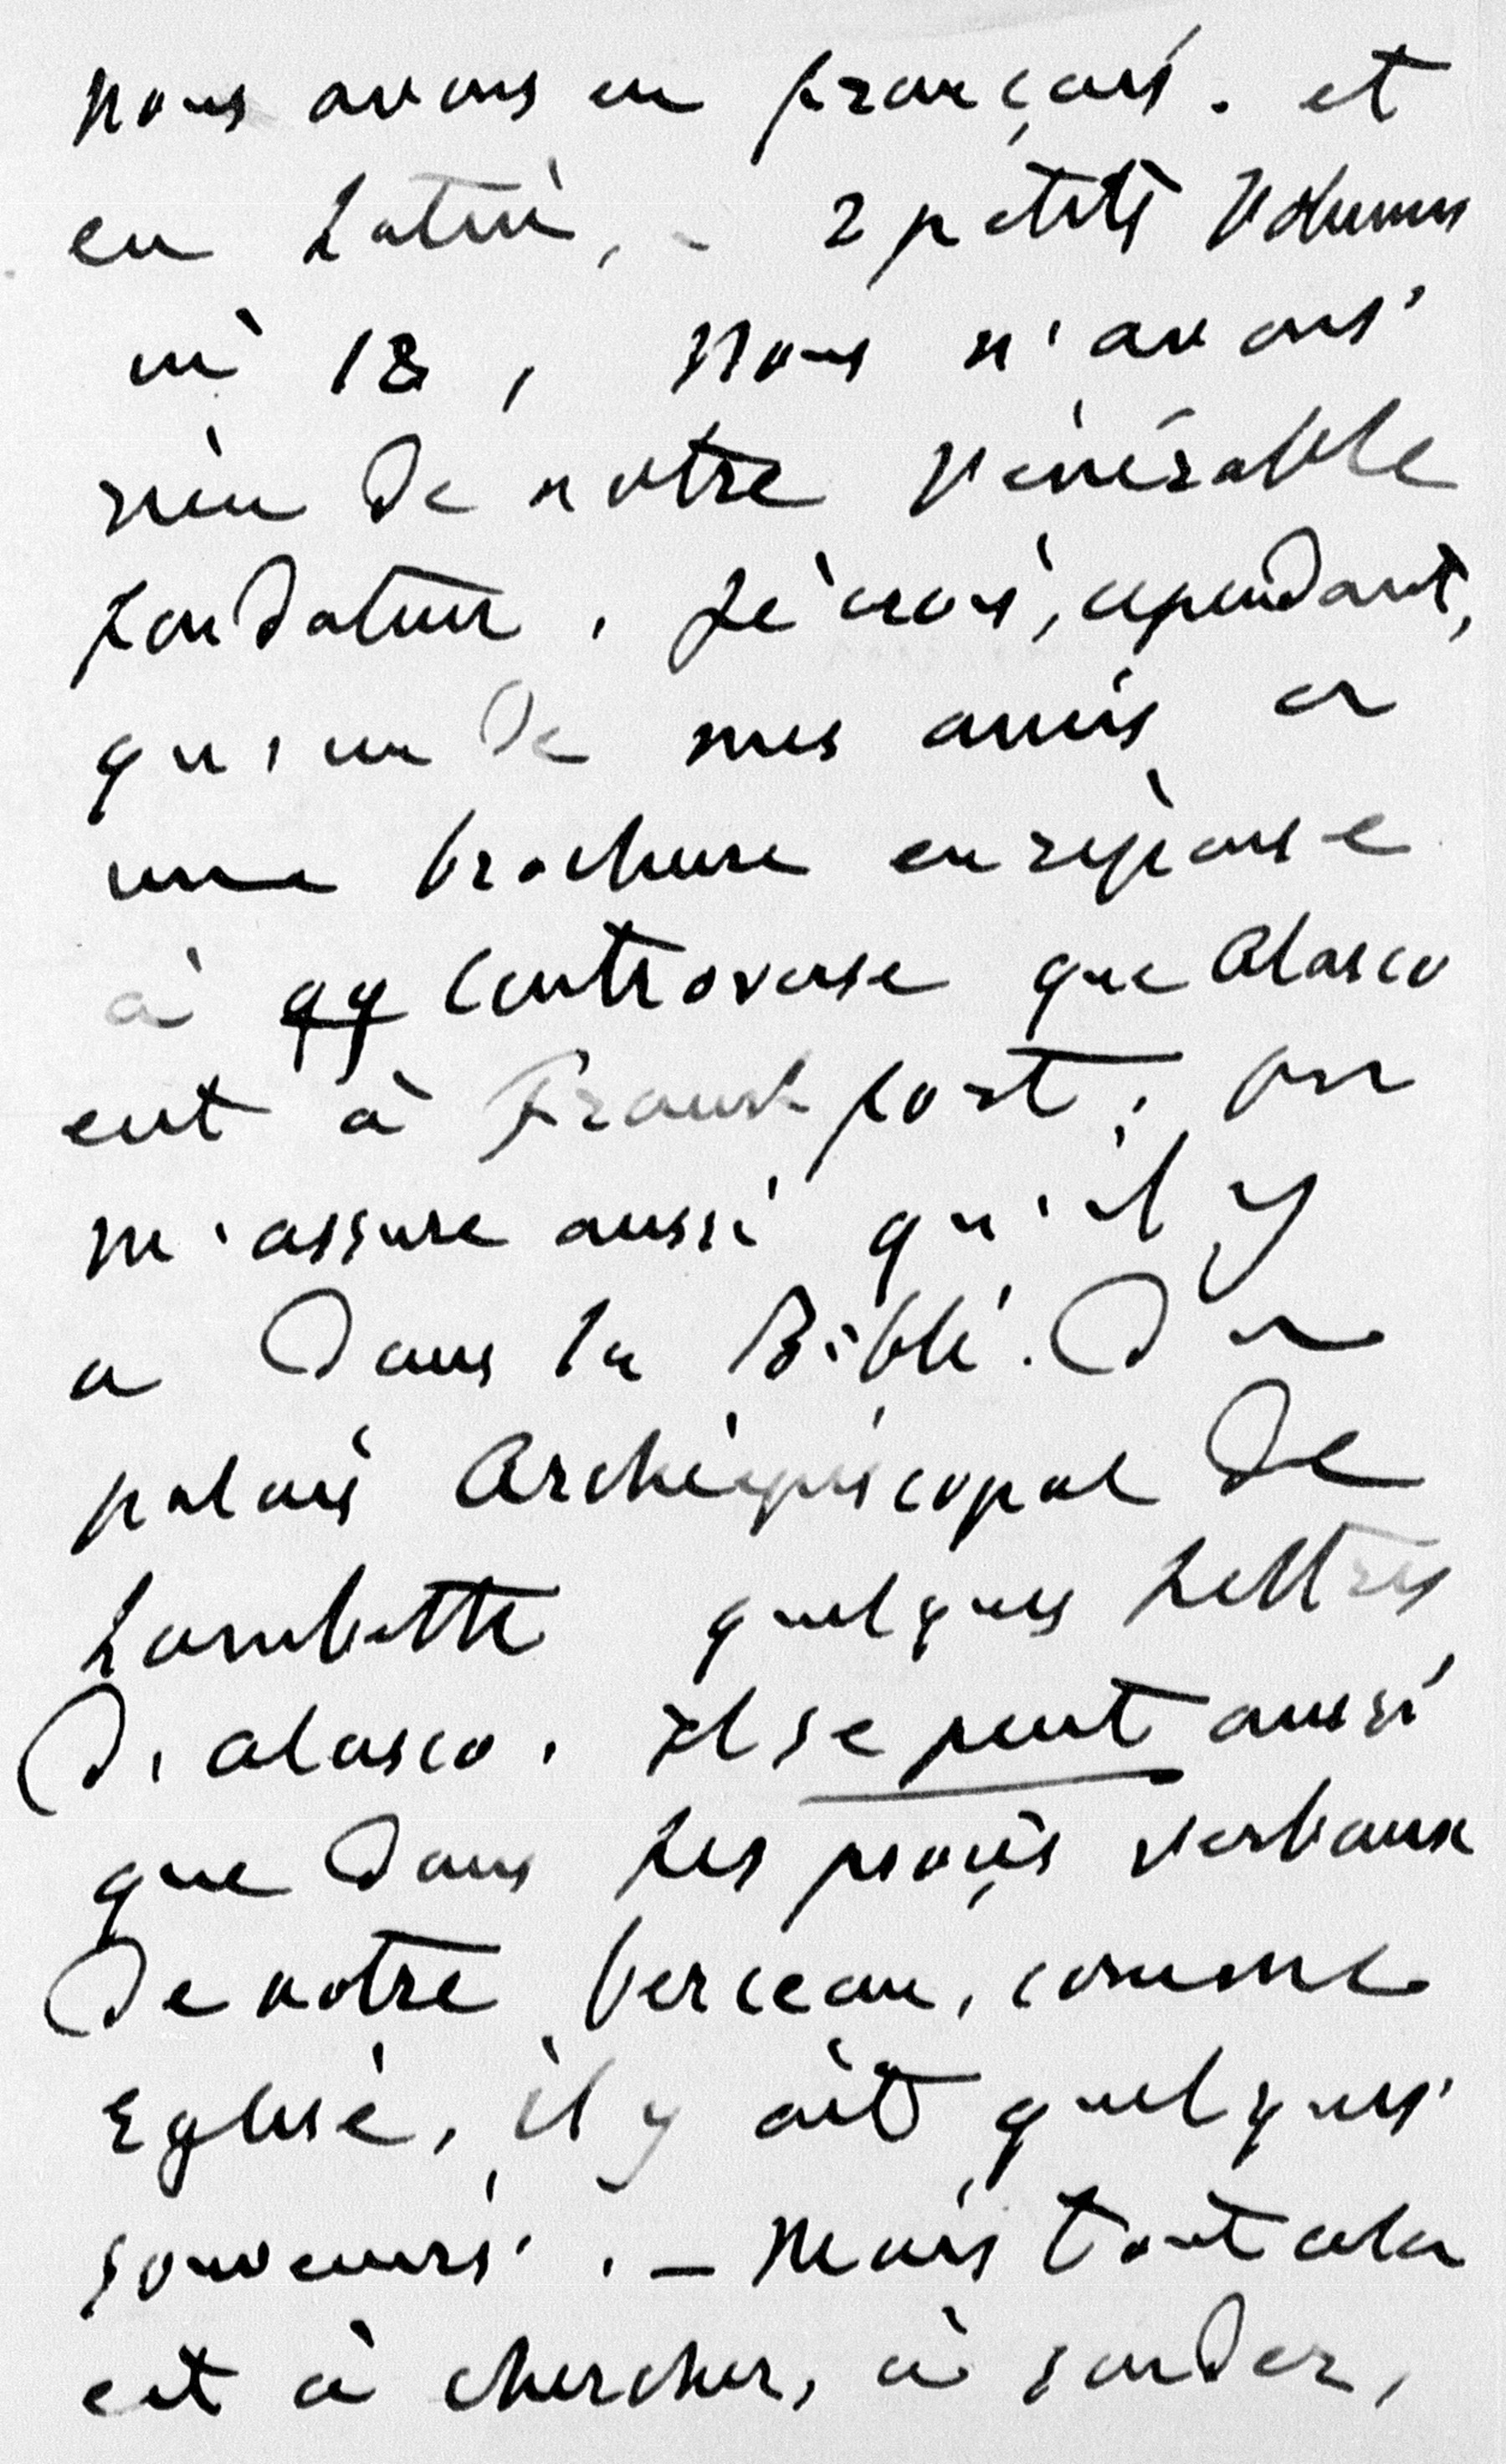 nous avons en français. et
en Latin, - 2 petits Volumes
in 18, Nous n'avons
rien de notre vénérable
fondateur. Je crois, cependant,
qu'un de mes amis a
une brochure en réponse
à qq Controverse que Alasco
eut à Frankfort. On
m'assure aussi qu'il y
a dans la Bible. du
palais Archiépiscopal de
Lambette quelques Lettres
d'alasco. Il se peut aussi
que dans les procès verbaux
de notre berceau, comme
Eglise, il y ait quelques
souvenirs. - Mais tout cela
est à chercher, à sonder,